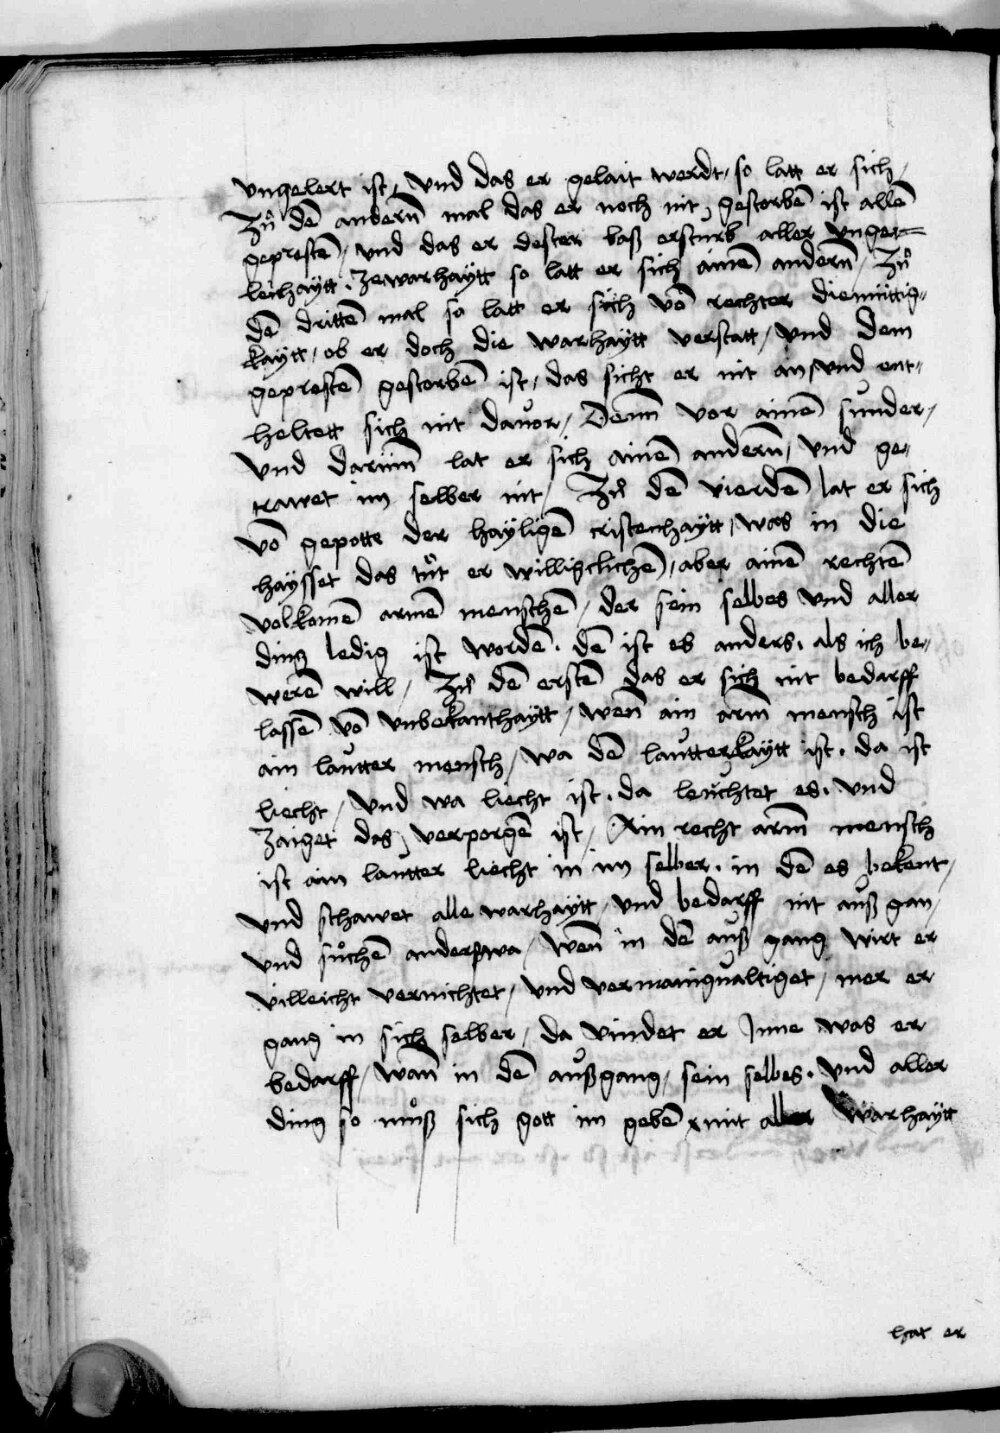 vngelert ist, Vnd das er gelait werdt, so latt er sich,
Zů dē andern̄ mal das er noch nit, gestorbē ist allē
geprestē, vnd das er dester baß ersturb aller vngei=
leichaÿtt. Zewarhaÿtt so latt er sich ainē andern̄, Zů
dē drittē mal so latt er sich vō rechter diemüttig„
kaÿtt, ob er doch die warhaÿtt verstatt, vnd dem
geprestē gestorbē ist, das sicht er nit an, vnd ent„
heltett sich nit dauor, Denn̄ vor ainē sunder,
Vnd darum̄ lat er sich ainē andern̄, Vnd ge„
trawet im selber nit, Zů dē vierdē lat er sich
vō gepotte der haÿligē cristenhaÿtt, was in die
haÿsset das tůt er williglichē, aber ainē rechtē
volkomē armē menschē, der sein selbes vnd aller
ding ledig ist wordē. dē ist es anders, als ich be„
werē will, Zů dē erstē das er sich nit bedarff
lassē vō vnbekanthaÿtt, wen̄ ain arm̄ mensch ist
ain lautter mensch, wa dē lautterkaÿtt ist. da ist
liecht, vnd wa liecht ist. da leuchtet es. vnd
zaiget das, verporgē ist, Ain recht arm̄ mensch
ist ain lautter liecht in im selber. in dē es bekent,
vnd schawet alle warhaÿtt, vnd bedarff nit auß gan,
vnd sůchē anderßwa, Wen̄ in dē auß gang wirt er
villeicht vernichtet, vnd vermanigualtiget, mer er
gang in sich selber, da vindet er Inne was er
bedarff, wan̄ in dē außgang, sein selbes. vnd aller
ding so můß sich gott im gebē mit aller warhaÿtt
hat er